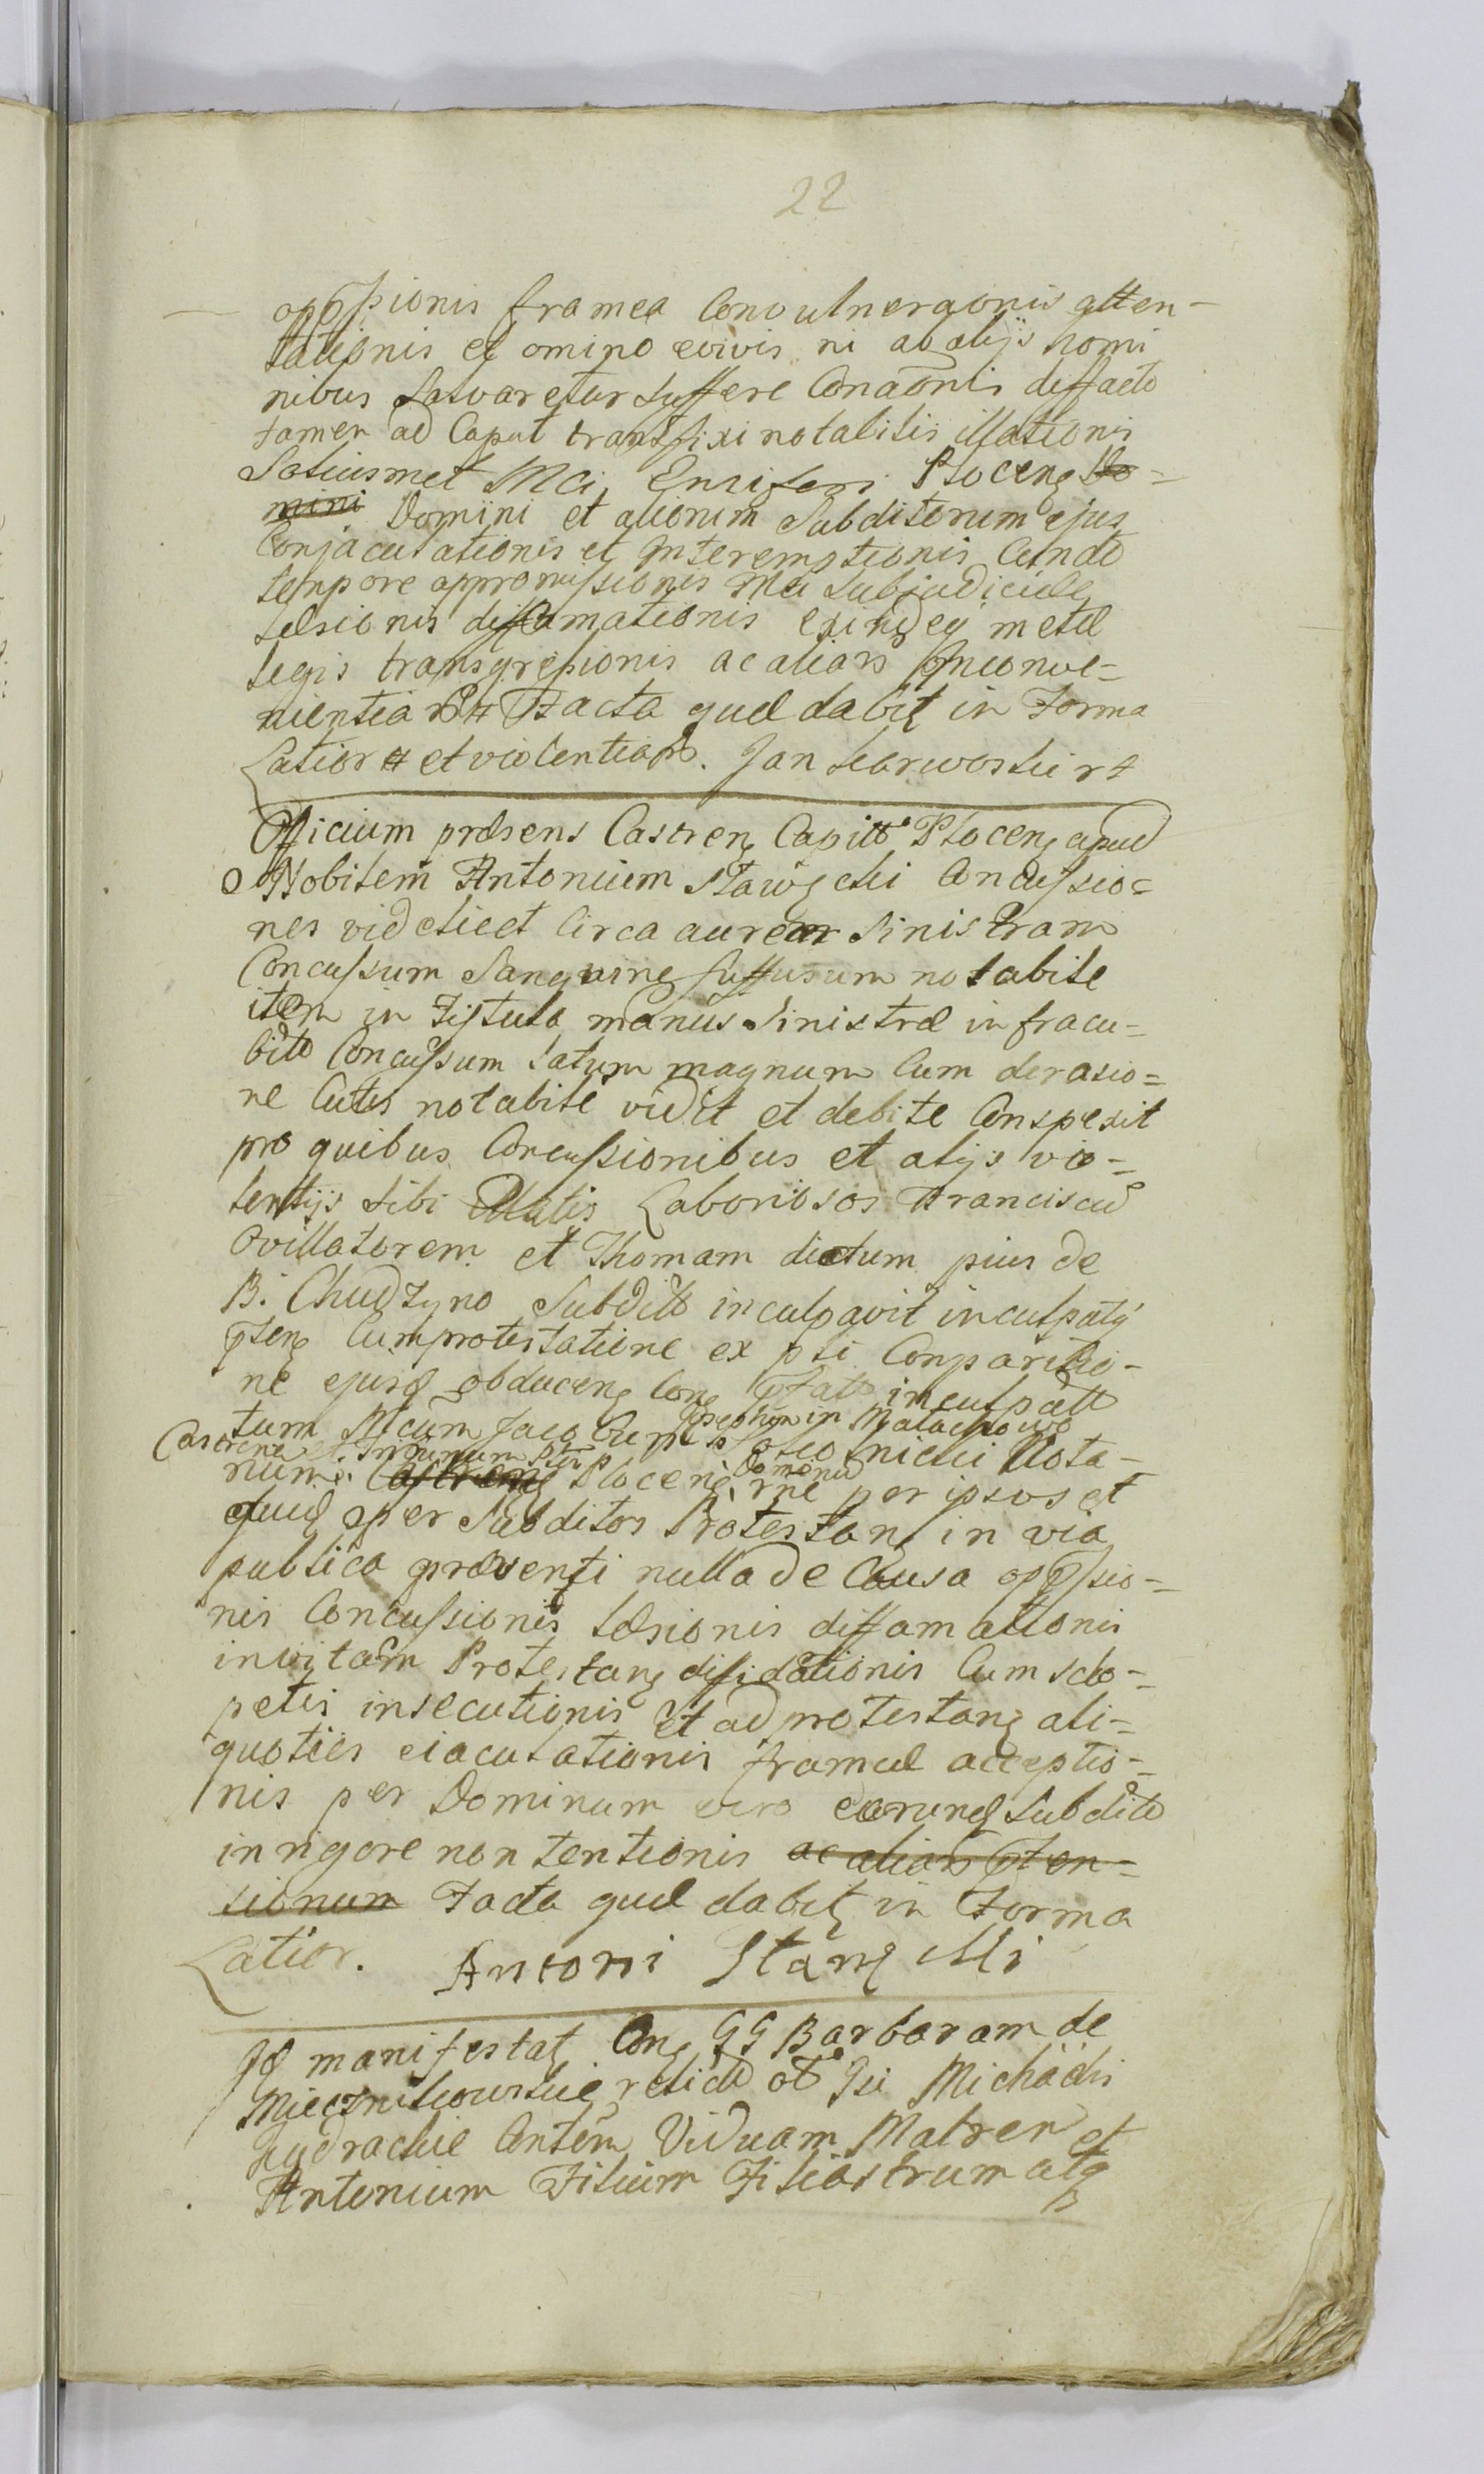 22
oppssionis framea Convulneraonis atten-
tationis et omino evivis ni ab alijs homi
nibus salvaretur suffere Conaonis deffacto
tamen ad Caput transfixi notabilis illationis
Solius met Mci Ensiferi Plocen Do=
mini Domini et aliorum Subditorum ejus
Conjaculationis et Interemptionis
tempore appromissionis Mci
læsionis diffamationis
legis transgressionis ac aliars Inconve-
nientiar Facta quæ dabit in Forma
Latior et violentiar. Jan
Officium præsens Castren Capitt Plocen apud
Nobilem Antonium Concussio=
nes videlicet Circa aurem sinistram
Concussum Sanguine suffusum notabile
item in Fistula manus sinistræ infracu-
bito Concussum satum magnum Cum derasio=
ne Cutis notabile vidit et debite Conspexit
pro quibus Concussionibus et alijs vio-
lentijs sibi illatis Laboriosos Franciscu
Ovillatorem et Thomam dictum pius de
B. Chudzyno Subditt inculpavit inculpatq
pten Cum protestatione ex pti Comparitio-
ne ejusd obducen Con inculpatt
tum Mcum Jacobum Josephum in Malachowo Nota-
Castrene et Tribunum
rium Castrens Plocen Dominu per ipsos et
quid per Subditos Protestan in via
publica præventi nulla de Causa oppssio-
nis Concussionis læsionis diffamationis
in vitam Protestan diffidationis Cum sclo-
petis insecutionis et ad protestan ali-
quoties eiaculationis frameæ acceptio-
nis per Dominum vero eorund Subditt
in rigore non tentionis ac aliars pten-
sionum Facta quæ dabit in Forma
Latior. Antoni
Id manifestat Con GG Barbaram de
relict ol Gsi Michaelis
Viduam Matrem et
Antonium Filium Filiastrum atq